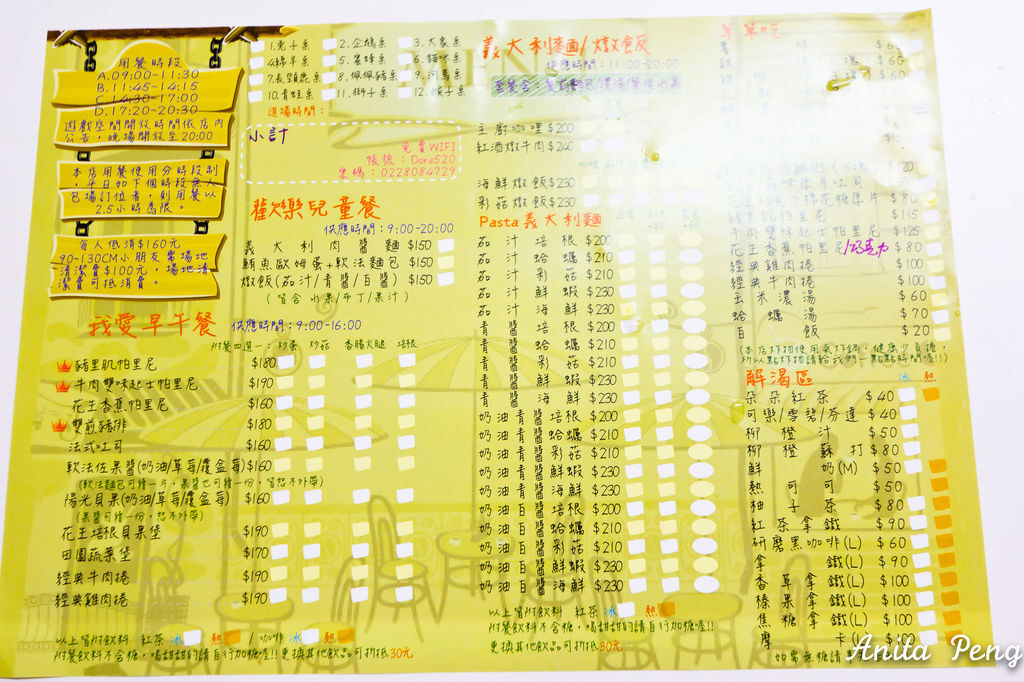 用餐時段
A.09:00-11:30
B.11:45-14:15
C.14:30-17:00
D.17:20-20:30
遊戲空間開放時間依店內
公告,晚場開放至20:00
本店用餐使用分時段制
,平日如下個時段無人
包場訂位者,則用餐以
2.5小時為限。
每人低消$160元
90-130CM小朋友需場地
清潔費$100元,場地清
潔費可抵消費。
1.兔子桌 2.企鵝桌 3.大象桌
4.綿羊桌 5.蜜蜂桌 6.貓咪桌
7.長頸鹿桌 8.佩佩豬桌 9.河馬桌
10.青蛙桌 11.獅子桌 12.猴子桌
進場時間:
小計
免費WIFI
帳號:Dora520
密碼:0228084729
歡樂兒童餐
供應時間:9:00-20:00
義大利肉醬麵 $150
鮪魚歐姆蛋+軟法麵包 $150
燉飯(茄汁/青醬/白醬) $150
(皆含 水果/布丁/果汁)
我愛早午餐 供應時間:9:00-16:00
附餐四選一: 炒蛋 炒菇 香腸火腿 培根
豬里肌帕里尼 $180
牛肉雙味起士帕里尼 $190
花生香蕉帕里尼 $160
雙煎豬排 $180
法式吐司 $160
軟法佐果醬(奶油/草莓/覆盆莓) $160
(軟法麵包可續一片,果醬也可續一份,皆恕不外帶)
陽光貝果(奶油/草莓/覆盆莓) $160
(果醬可續一份,恕不外帶)
花生培根貝果堡 $190
田園蔬菜堡 $170
經典牛肉捲 $190
經典雞肉捲 $190
以上皆附飲料 紅茶 冰 熱 / 咖啡 冰 熱
附餐飲料不含糖,喝甜甜的請自行加糖喔!!更換其他飲品可折抵30元
義大利麵/燉飯
供應時間:11:00-20:00
主廚咖哩 $200
紅酒燉牛肉 $240
海鮮燉飯 $230
彩菇燉飯 $230
Pasta義大利麵
茄汁培根 $200
茄汁蛤蠣 $210
茄汁彩菇 $210
茄汁鮮蝦 $230
茄汁海鮮 $230
青醬培根 $200
青醬蛤蠣 $210
青醬彩菇 $210
青醬鮮蝦 $230
青醬海鮮 $230
奶油青醬培根 $200
奶油青醬蛤蠣 $210
奶油青醬彩菇 $210
奶油青醬鮮蝦 $230
奶油青醬海鮮 $230
奶油白醬培根 $200
奶油白醬蛤蠣 $210
奶油白醬彩菇 $210
奶油白醬鮮蝦 $230
奶油白醬海鮮 $230
以上皆附飲料 紅茶 冰 熱
附餐飲料不含糖,喝甜甜的請自行加糖喔!!
更換其他飲品可折抵30元
單單吃
豬里肌帕里尼 $115
牛肉雙味起士帕里尼 $125
花生香蕉帕里尼/巧克力 $80
經典雞肉捲 $100
經典牛肉捲 $100
玉米濃湯 $60
蛤蠣湯 $70
白飯 $20
(本店炸物使用氣炸鍋,健康少負擔,
所以點炸物請給我們一點點時間喔!!)
解渴區 冰 熱
朵朵紅茶 $40
可樂/雪碧/芬達 $40
柳橙汁 $50
柳橙蘇打 $80
鮮奶(M) $50
熱可可 $50
柚子茶 $80
紅茶拿鐵 $90
研磨黑咖啡(L) $60
拿鐵(L) $90
香草拿鐵(L) $100
榛果拿鐵(L) $100
焦糖拿鐵(L) $100
摩卡(L) $100
如需無糖請
Anita Peng